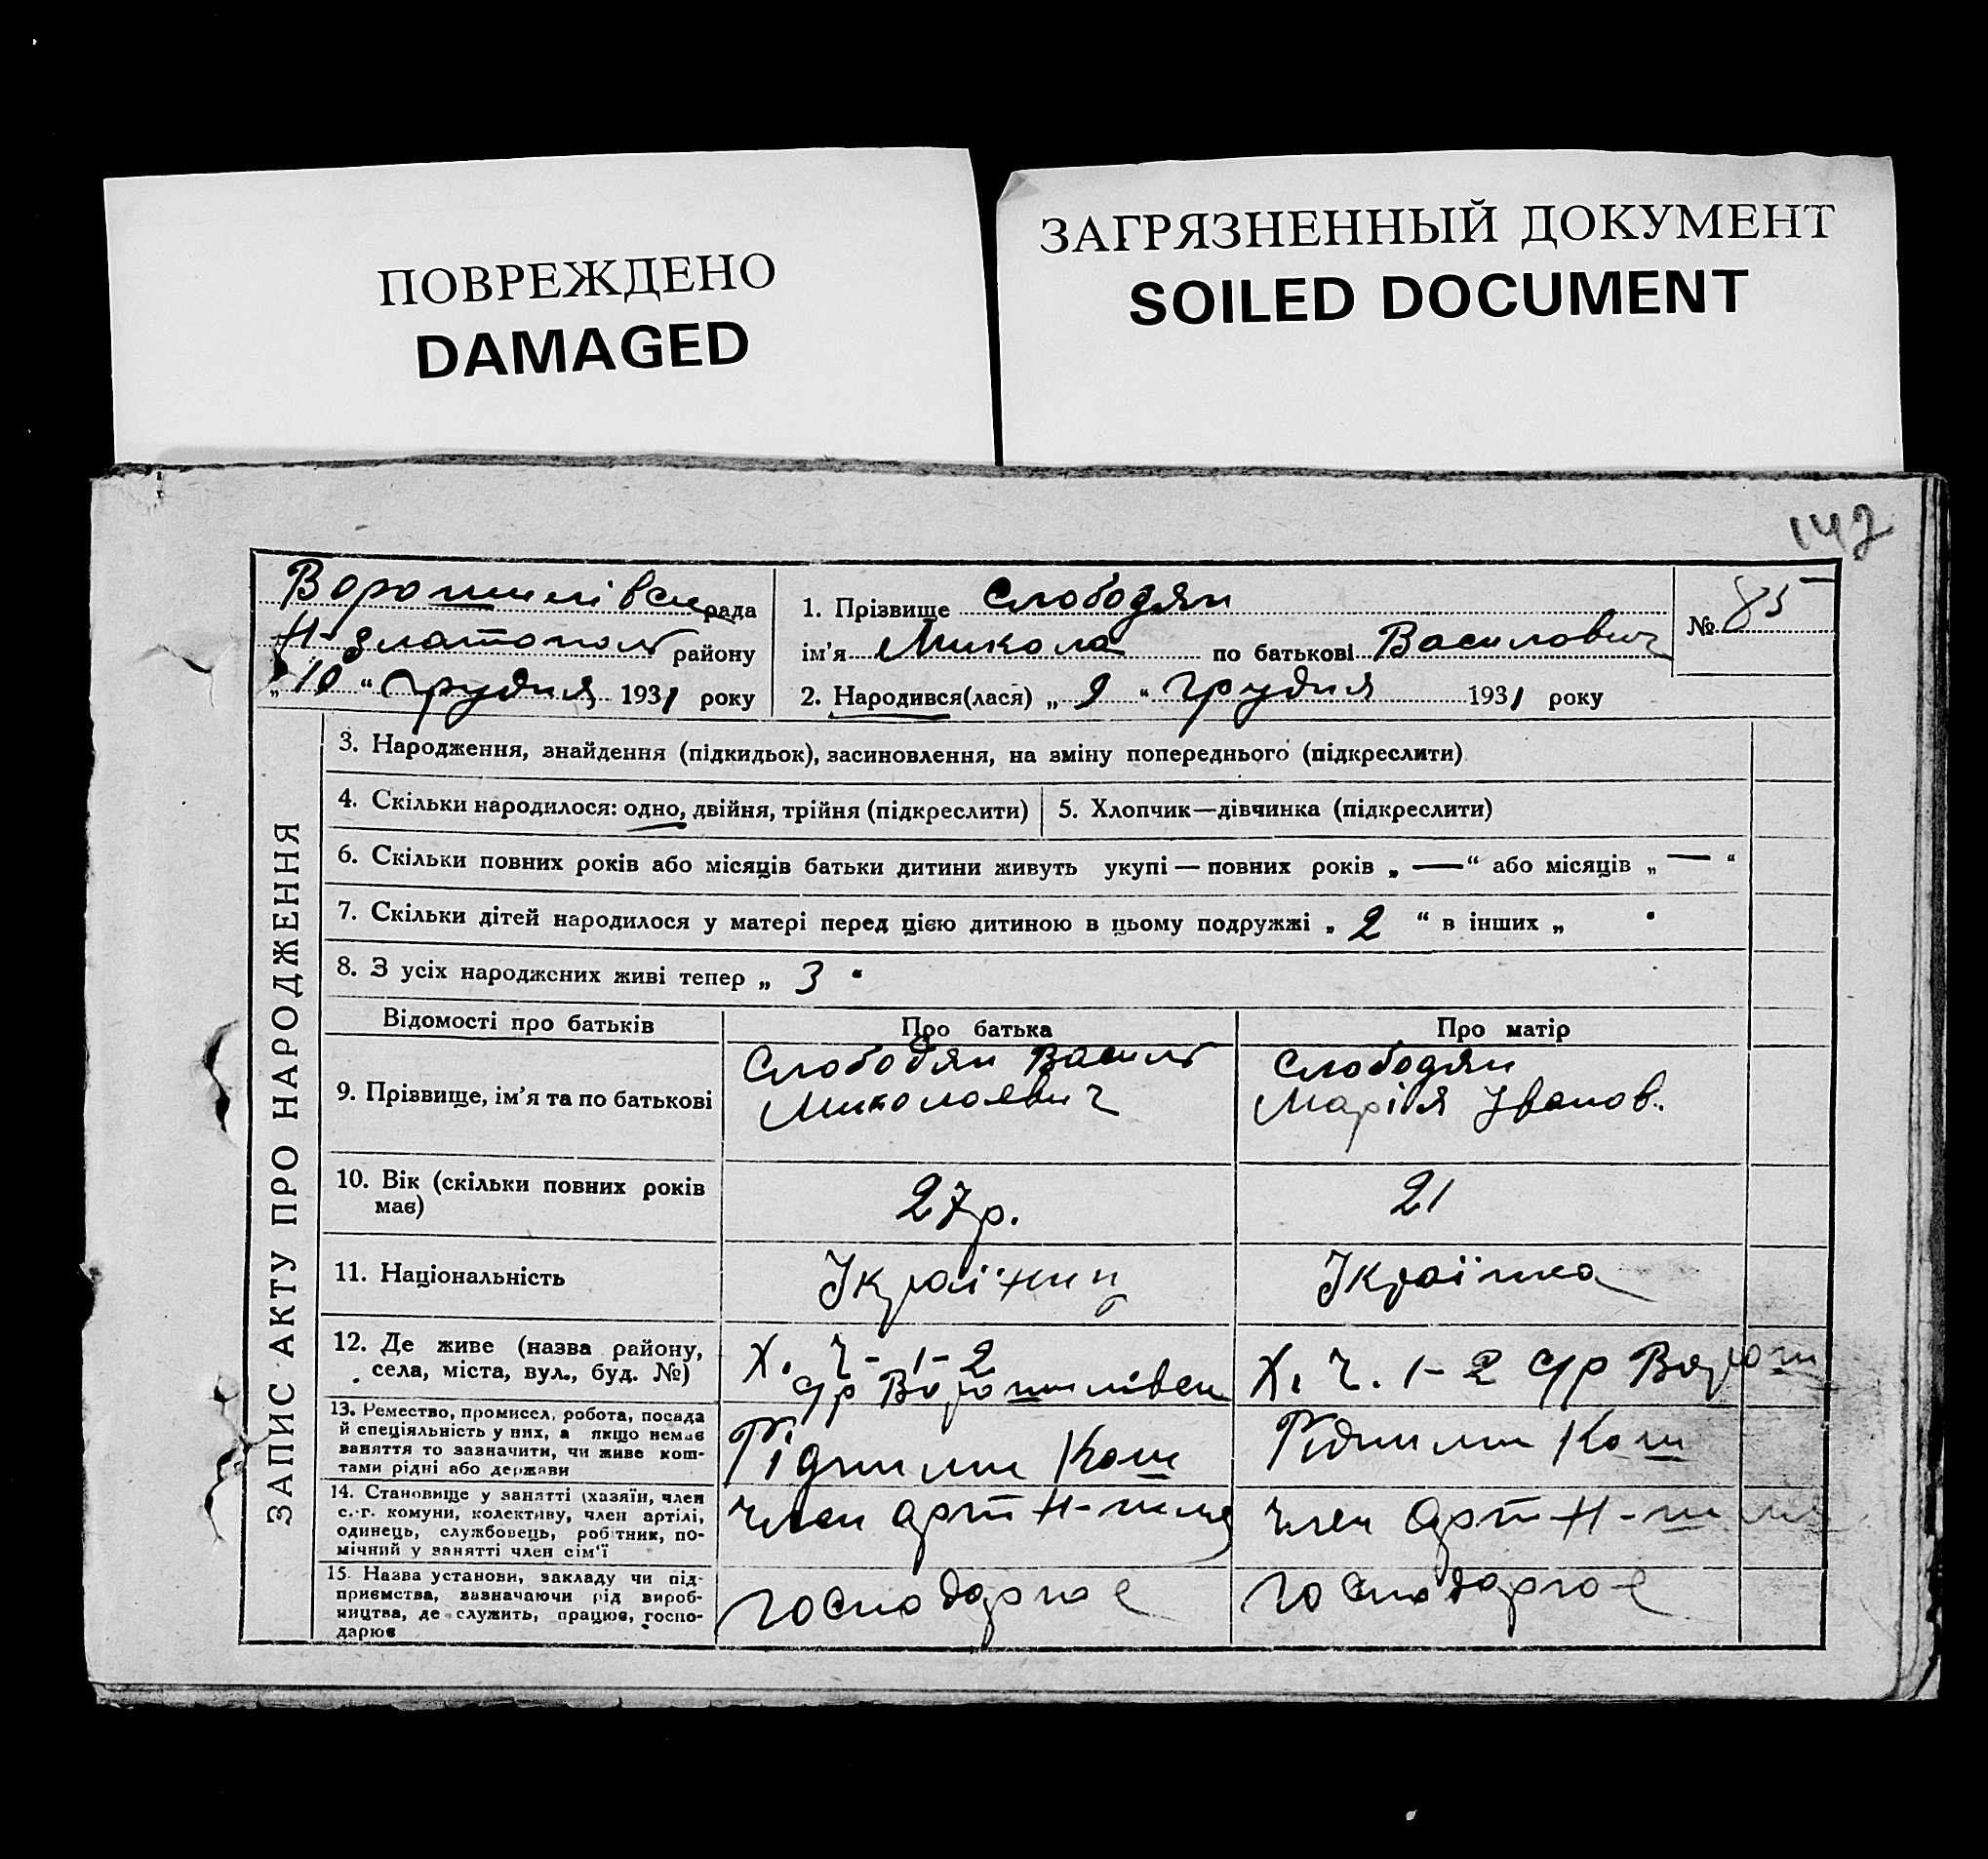 ПОВРЕЖДЕНО
DAMAGED
ЗАГРЯЗНЕННЫЙ ДОКУМЕНТ
SOILED DOCUMENT
142
Ворошилівськ рада
Н-Златопол району
„10“ Грудня 1931 року
1. Прізвище Слободян
ім’я Микола по батькові Василович
№ 85
2. Народився(лася) „9“ Грудня 1931 року
ЗАПИС АКТУ ПРО НАРОДЖЕННЯ
3. Народження, знайдення (підкидьок), засиновлення, на зміну попереднього (підкреслити)
4. Скільки народилося: одно, двійня, трійня (підкреслити)
5. Хлопчик—дівчинка (підкреслити)
6. Скільки повних років або місяців батьки дитини живуть укупі — повних років „ — “ або місяців „ — “
7. Скільки дітей народилося у матері перед цією дитиною в цьому подружжі „ 2 “ в інших „
8. З усіх народжених живі тепер „ 3 “
Відомості про батьків
Про батька
Про матір
9. Прізвище, ім’я та по батькові
Слободян Василь
Миколаєвич
Слободян
Марія Іванов.
10. Вік (скільки повних років
має)
27р.
21
11. Національність
Українец
Українка
12. Де живе (назва району,
села, міста, вул., буд. №)
Х. Ч-1-2
с/р Ворошилівськ
Х. Ч. 1-2 с/р Ворош
13. Ремество, промисел, робота, посада
й спеціяльність у них, а якщо немає
заняття то зазначити, чи живе кош-
тами рідні або держави
Кош
Кош
14. Становище у занятті (хазяїн, член
с.-г. комуни, колективу, член артілі,
одинець, службовець, робітник, по-
мічний у занятті член сім’ї
член арт Н-
член арт Н-
15. Назва установи, закладу чи під-
приємства, зазначаючи рід вироб-
ництва, де служить, працює, госпо-
дарює
господарює
господарює